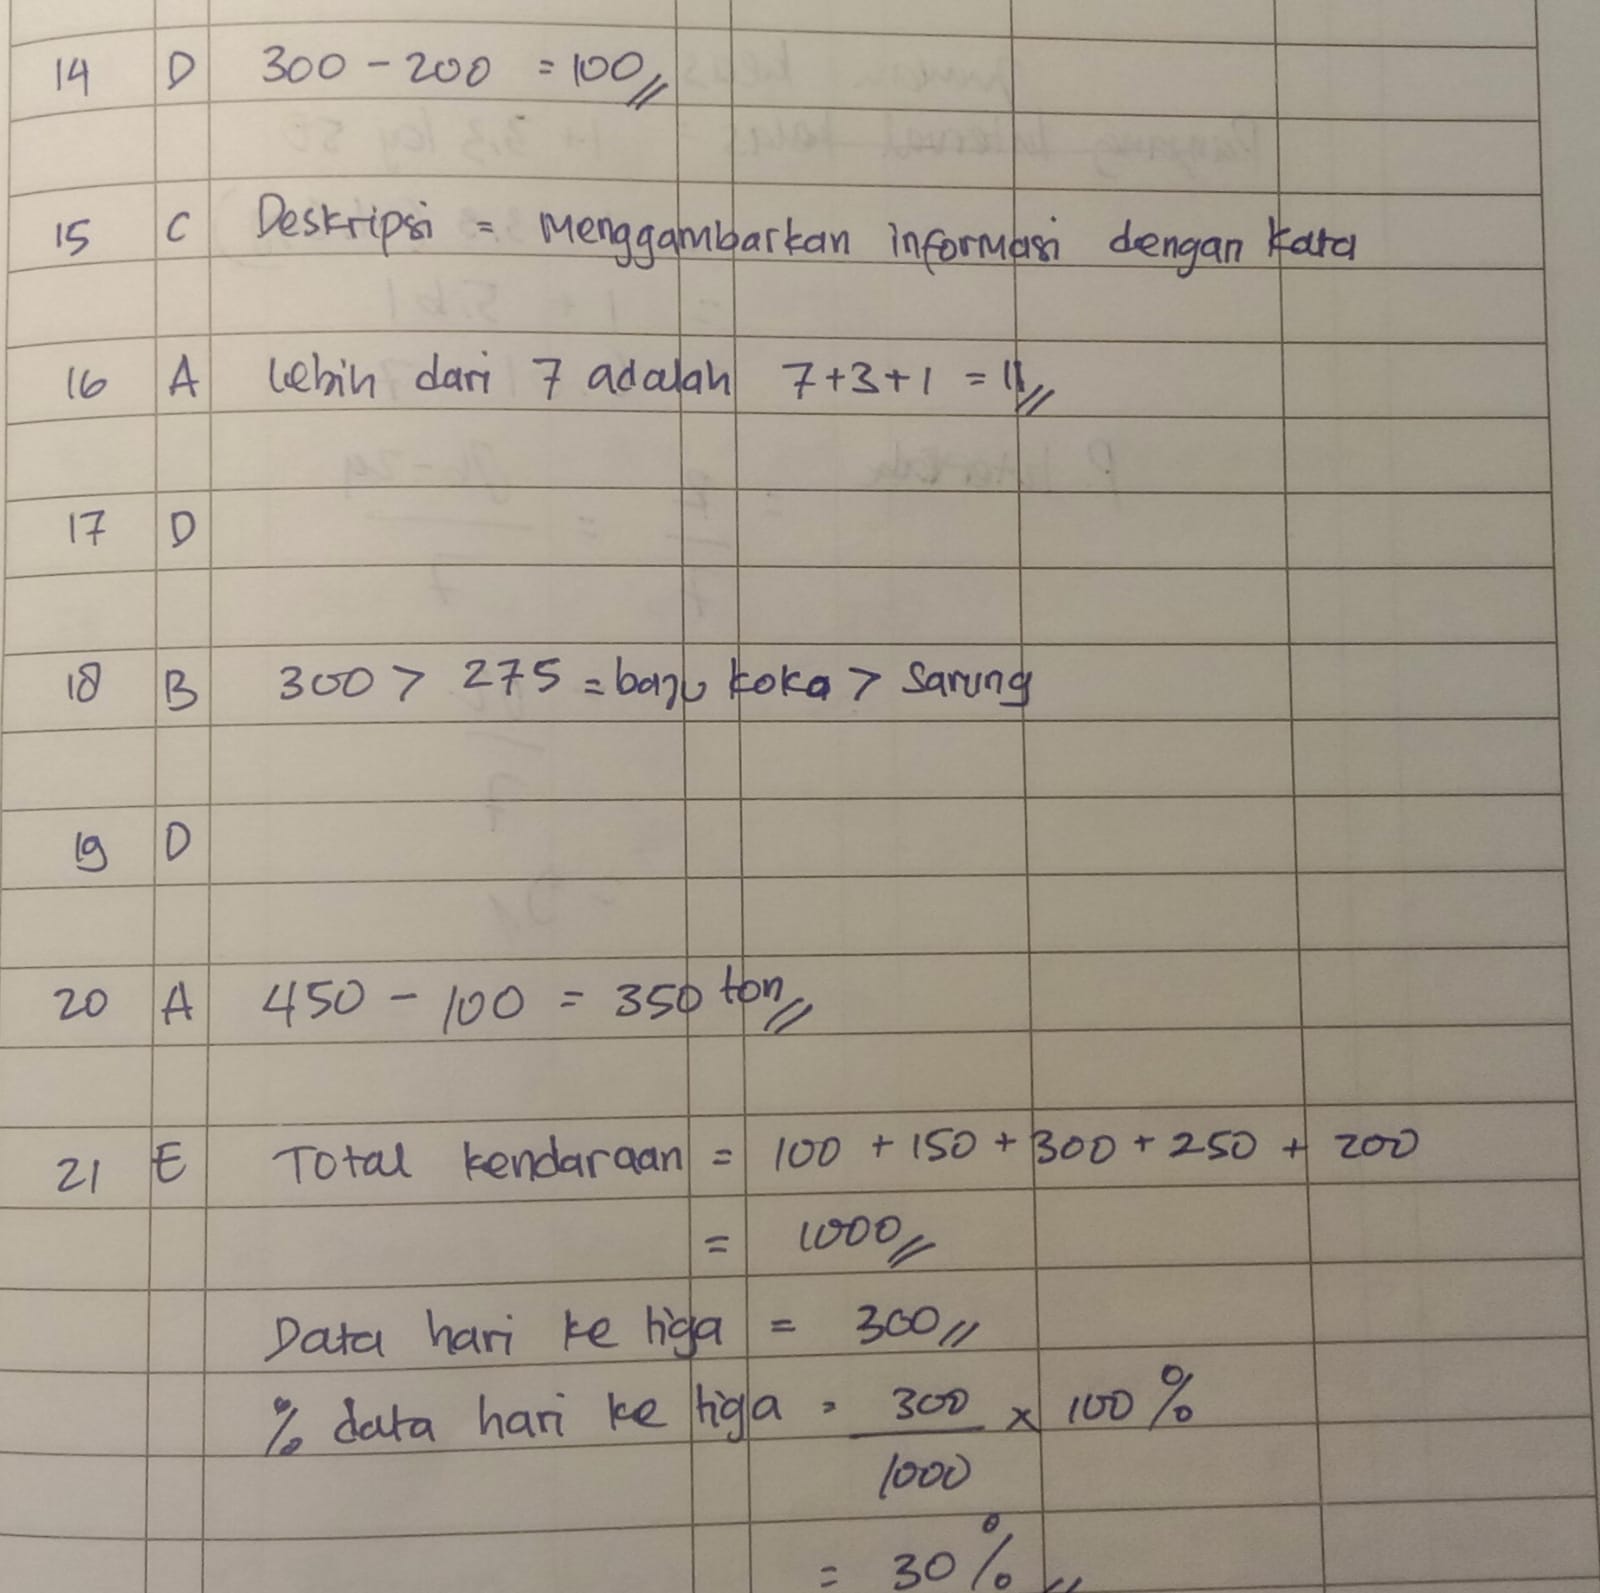 14 D 300 - 200 = 100
15 C Deskripsi = Menggambarkan informasi dengan kata
16 A Lebih dari 7 adalah 7+3+1 = 11
17 D
18 B 300 > 275 = baju koko > Sarung
19 D
20 A 450 - 100 = 350 ton
21 E Total kendaraan = 100 + 150 + 300 + 250 + 200
= 1000
Data hari ke tiga = 300
% data hari ke tiga = 300 x 100 %
1000
= 30 %